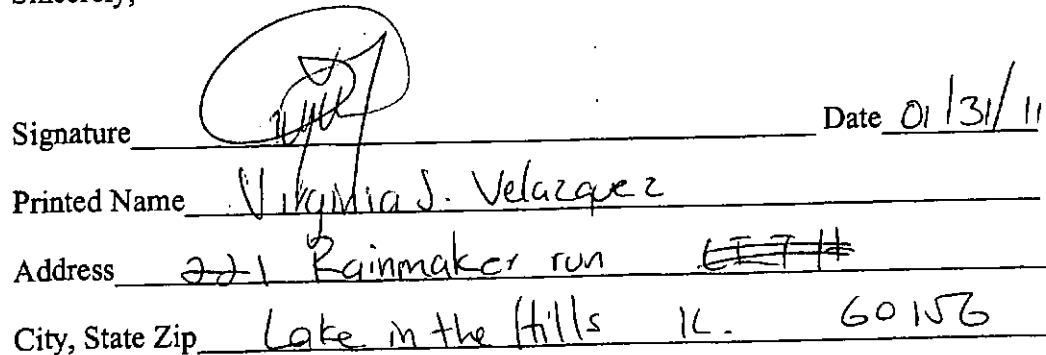 Sincerely,
Signature Date 01/31/11
Printed Name Virginia J. Velazquez
Address 221 Rainmaker run
City, State Zip Lake in the Hills IL. 60156